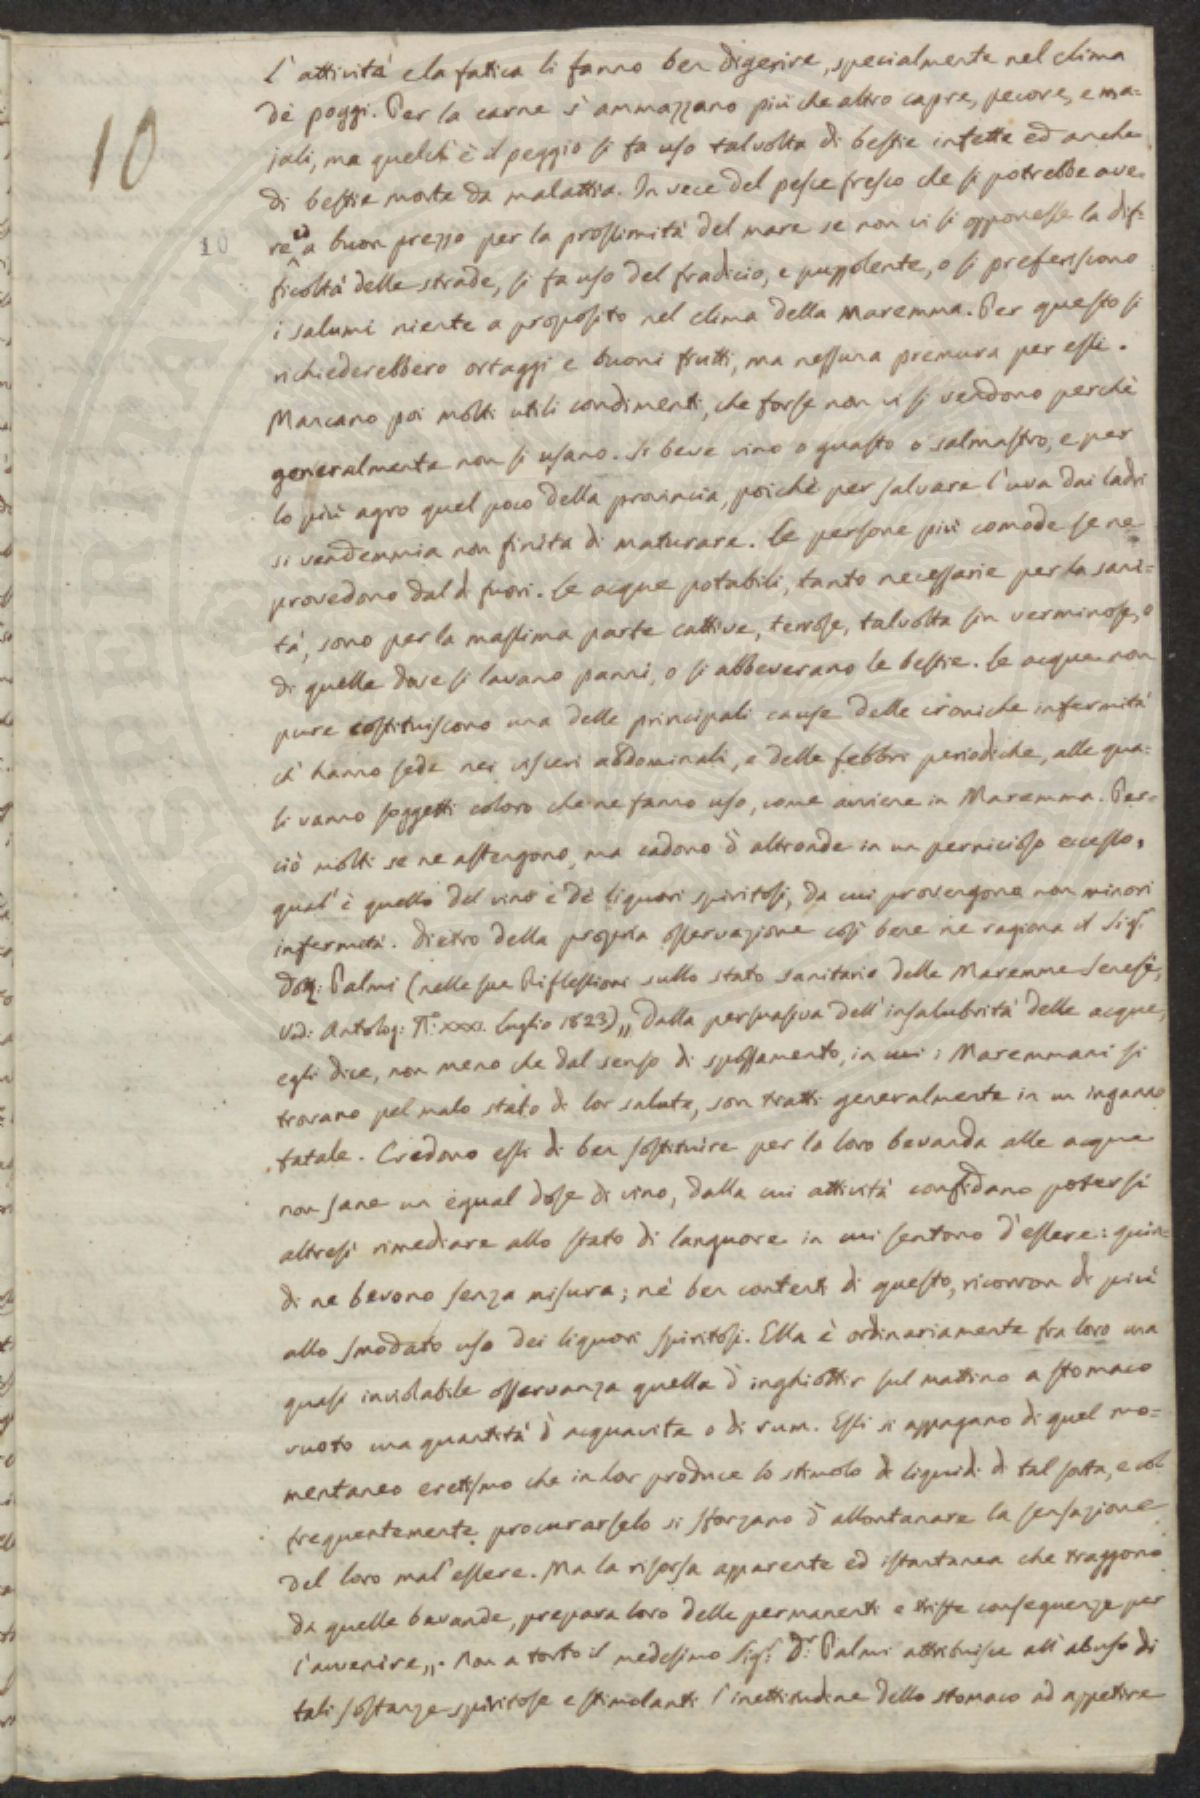 10
10
l'attività e la fatica li fanno ben digerire, specialmente nel clima
de' poggi. Per la carne s'ammazzano più che altro capre, pecore, e ma=
jali, ma quelch'è il peggio si fa uso talvolta di bestie infette ed anche
di bestie morte da malattia. In vece del pesce fresco che si potrebbe ave=
re ed a buon prezzo per la prossimità del mare se non vi si opponesse la dif=
ficoltà delle strade, si fa uso del fradicio, e puzzolente, o si preferiscono
i salumi niente a proposito nel clima della Maremma. Per questo si
richiederebbero ortaggi e buoni frutti, ma nessuna premura per essi.
Mancano poi molti utili condimenti, che forse non vi si vendono perchè
generalmente non si usano. Si beve vino o guasto o salmastro, e per
lo più agro quel poco della provincia, poichè per salvare l'uva dai ladri
si vendemmia non finita di maturare. Le persone più comode se ne
provedono dal di fuori. Le acque potabili, tanto necessarie per la sani=
tà, sono per la massima parte cattive, terrose, talvolta sin verminose, o
di quelle dove si lavano panni, o si abbeverano le bestie. Le acque non
pure costituiscono una delle principali cause delle croniche infermità
ch'hanno sede nei visceri abdominali, e delle febbri periodiche, alle qua=
li vanno soggetti coloro che ne fanno uso, come avviene in Maremma. Per=
ciò molti se ne astengono, ma cadono d'altronde in un pernicioso eccesso,
qual'è quello del vino e de' liquori spiritosi, da cui provengono non minori
infermità. Dietro della propria osservazione così bene ne ragiona il Sig.r
Dott: Palmi (nelle sue Riflessioni sullo stato sanitario delle Maremme Senesi,
Ved: Antolog: N.° XXXI. Luglio 1823) „ Dalla persuasiva dell'insalubrità delle acque,
egli dice, non meno che dal senso di spossamento, in cui i Maremmani si
trovano pel malo stato di lor salute, son tratti generalmente in un inganno
fatale. Credono essi di ben sostituire per la loro bevanda alle acque
non sane un egual dose di vino, dalla cui attività confidano potersi
altresì rimediare allo stato di languore in cui sentono d'essere: quin=
di ne bevono senza misura; nè ben contenti di questo, ricorron di più
allo smodato uso dei liquori spiritosi. Ella è ordinariamente fra loro una
quasi inviolabile osservanza quella d'inghiottir sul mattino a stomaco
vuoto una quantità d'acquavite o di rum. Essi si appagano di quel mo=
mentaneo eretismo che in lor produce lo stimolo di liquidi di tal sorta, e col
frequentemente procurarselo si sforzano d'allontanare la sensazione
del loro mal'essere. Ma la risorsa apparente ed istantanea che traggono
da quelle bevande, prepara loro delle permanenti e triste conseguenze per
l'avvenire„. Non a torto il medesimo Sig.r D.r Palmi attribuisce all'abuso di
tali sostanze spiritose e stimolanti l'inettitudine dello stomaco ad appetire